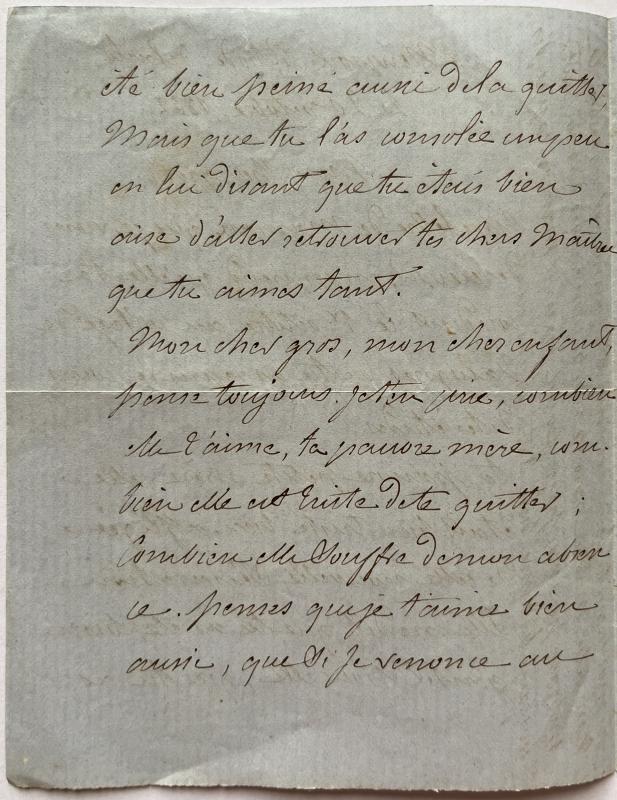 été bien peiné aussi de la quitter,
Mais que tu l'as consolée un peu
en lui disant que tu étais bien
aise d'aller retrouver tes chers Maîtres
que tu aimes tant.
Mon cher gros, mon cher enfant,
pense toujours. je t'en prie, combien
elle t'aime, ta pauvre mère, com-
bien elle est triste de te quitter ;
Combien elle souffre de mon absen
ce. penses que je t'aime bien
aussi, que Si Je renonce au